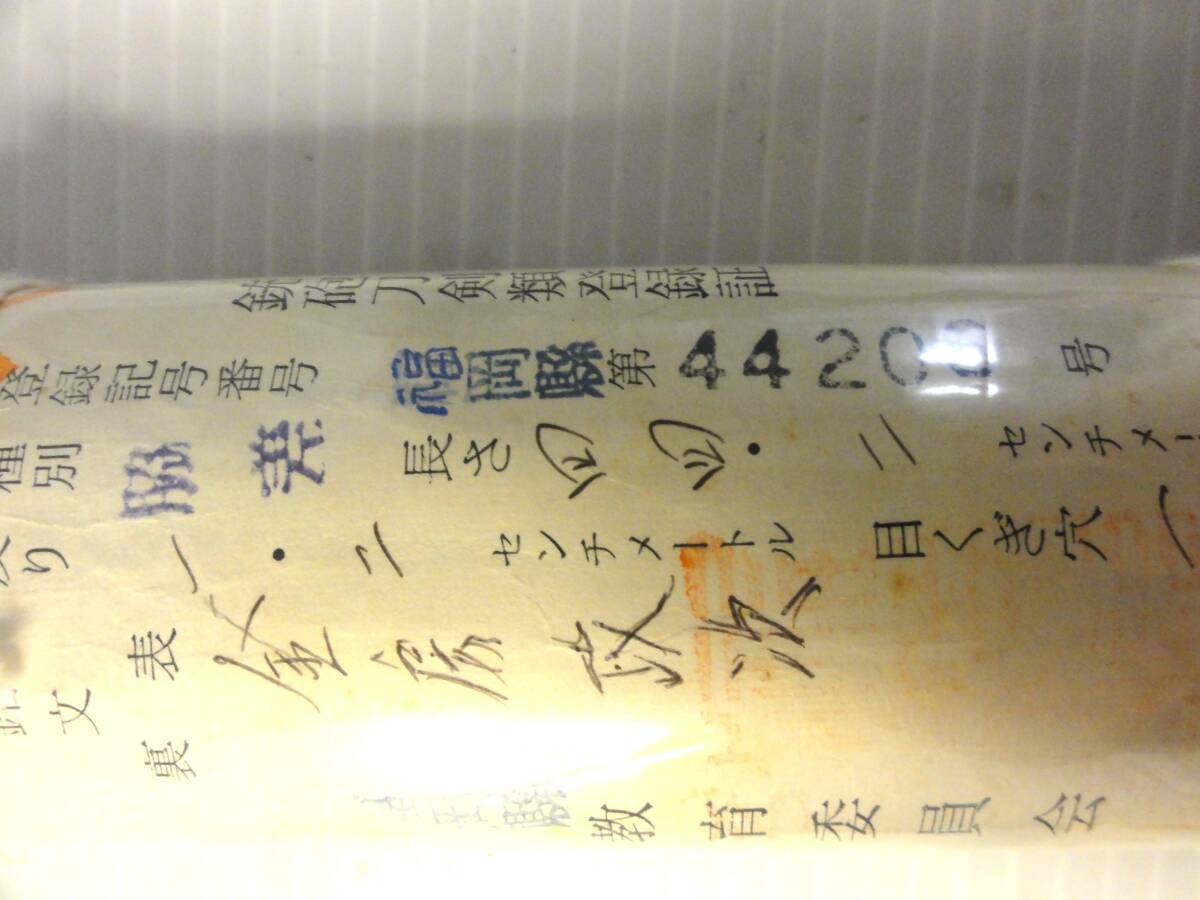 銃砲刀剣類登録証
登録記号番号 福岡縣第 4420 号
種別 脇差 長さ 四四・二 センチメー
反り 一・二 センチメートル 目くぎ穴 一
銘文 表 金房政次
裏
縣 教育委員会